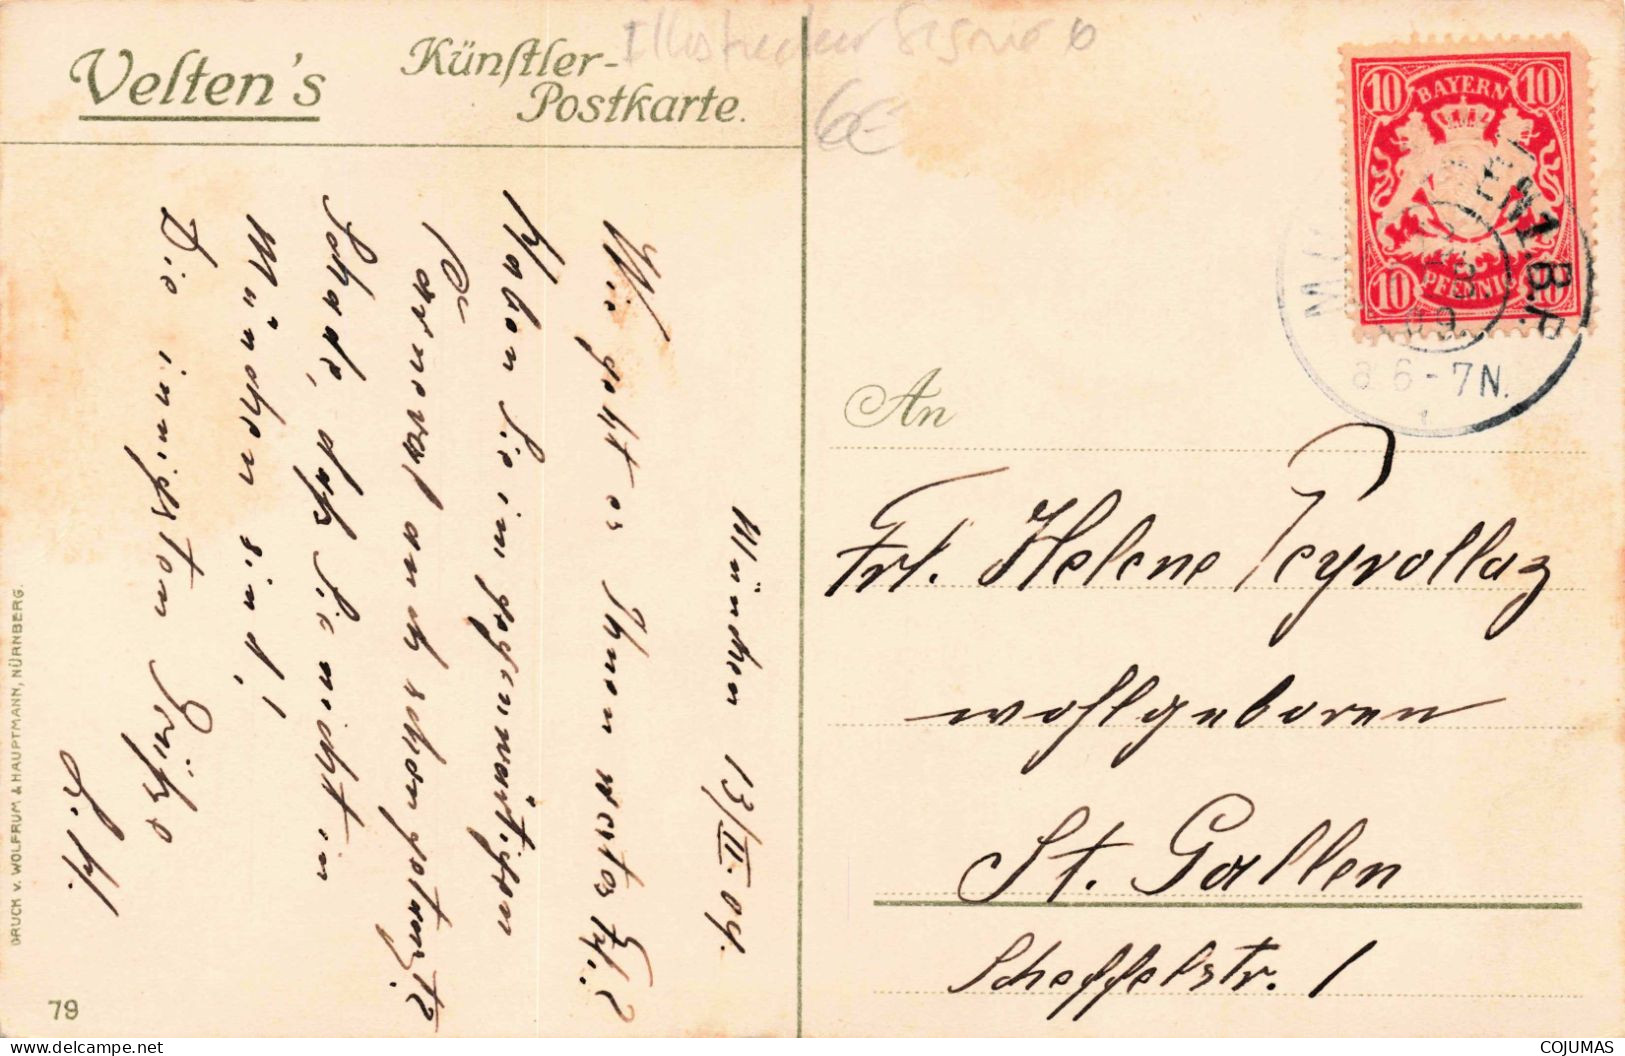 Velten's
Künstler-
Postkarte.
6€
BAYERN
10 10
10 PFENNIG 10
MÜNCHEN 1. B.P.
13
09
8 6-7 N.
München 13/II. 09.
Wie geht es Ihnen wertes Frl.?
Haben Sie im gegenwärtigen
Carneval auch schon getanzt?
Schade, daß Sie nicht in
München sind!
Die innigsten Grüße
An
Frl. Helene Peyrollaz
wohlgeboren
St. Gallen
Scheffelstr. 1
DRUCK v. WOLFRUM & HAUPTMANN, NÜRNBERG.
79
delcampe.net
COJUMAS